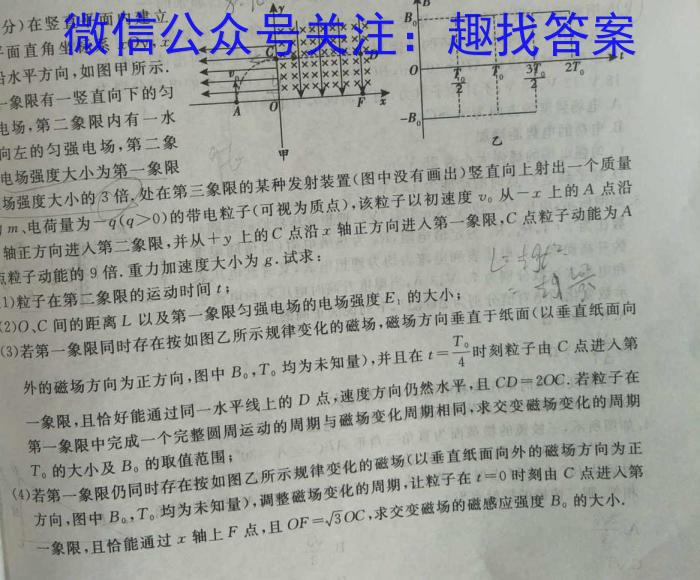 微信公众号关注：趣找答案
分)在竖直平面内建立
平面直角坐标系
沿水平方向,如图甲所示.
一象限有一竖直向下的匀
电场,第二象限内有一水
向左的匀强电场,第二象
电场强度大小为第一象限
场强度大小的3倍.处在第三象限的某种发射装置(图中没有画出)竖直向上射出一个质量
m、电荷量为-q(q>0)的带电粒子(可视为质点),该粒子以初速度v₀从-x上的A点沿
轴正方向进入第二象限,并从+y上的C点沿x轴正方向进入第一象限,C点粒子动能为A
点粒子动能的9倍.重力加速度大小为g.试求:
(1)粒子在第二象限的运动时间t;
(2)O、C间的距离L以及第一象限匀强电场的电场强度E₁的大小;
(3)若第一象限同时存在按如图乙所示规律变化的磁场,磁场方向垂直于纸面(以垂直纸面向
外的磁场方向为正方向,图中B₀,T₀均为未知量),并且在t=T₀/4时刻粒子由C点进入第
一象限,且恰好能通过同一水平线上的D点,速度方向仍然水平,且CD=2OC.若粒子在
第一象限中完成一个完整圆周运动的周期与磁场变化周期相同,求交变磁场变化的周期
T₀的大小及B₀的取值范围;
(4)若第一象限仍同时存在按如图乙所示规律变化的磁场(以垂直纸面向外的磁场方向为正
方向,图中B₀,T₀均为未知量),调整磁场变化的周期,让粒子在t=0时刻由C点进入第
一象限,且恰能通过x轴上F点,且OF=√3OC,求交变磁场的磁感应强度B₀的大小.
y
C
D
v₀
A
O
F
x
甲
B
B₀
O
T₀/2
T₀
3T₀/2
2T₀
t
-B₀
乙